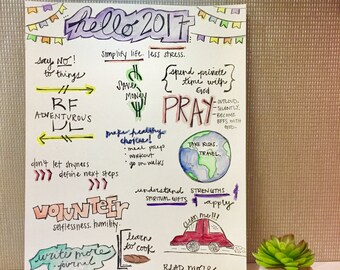 hello 2017
simplify life. less stress.
say NO!
to things
save
money
{spend private
time with
God}
BE
ADVENTUROUS
PRAY
make healthy
choices!
• meal prep
• workout
• go on walks
TAKE RISKS.
TRAVEL.
don't let shyness
define next steps
understand STRENGTHS
SPIRITUAL GIFTS
apply
VOLUNTEER
selflessness. humility.
write more
journal
learn
to cook
READ MORE